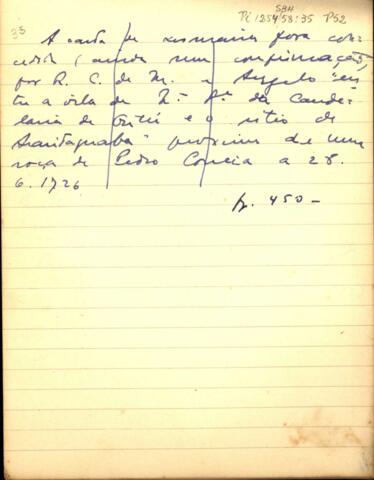 SBH
Pi 1254 58:35 P52
35
A carta de sesmaria fora con-
cedida (ainda sem confirmação)
por R. C. de M. a Angelo "en-
tre a vila de N.ª Sr.ª da Cande-
laria de Outú e o sitio de
Araritaguaba" proximo de uma
roça de Pedro Correia a 28.
6. 1726
p. 450 -